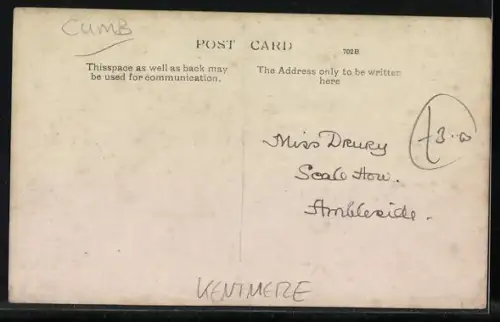 CUMB
POST CARD
702B
Thisspace as well as back may
be used for communication.
The Address only to be written
here
Miss Drury
Scale How.
Ambleside.
£3.00
KENTMERE